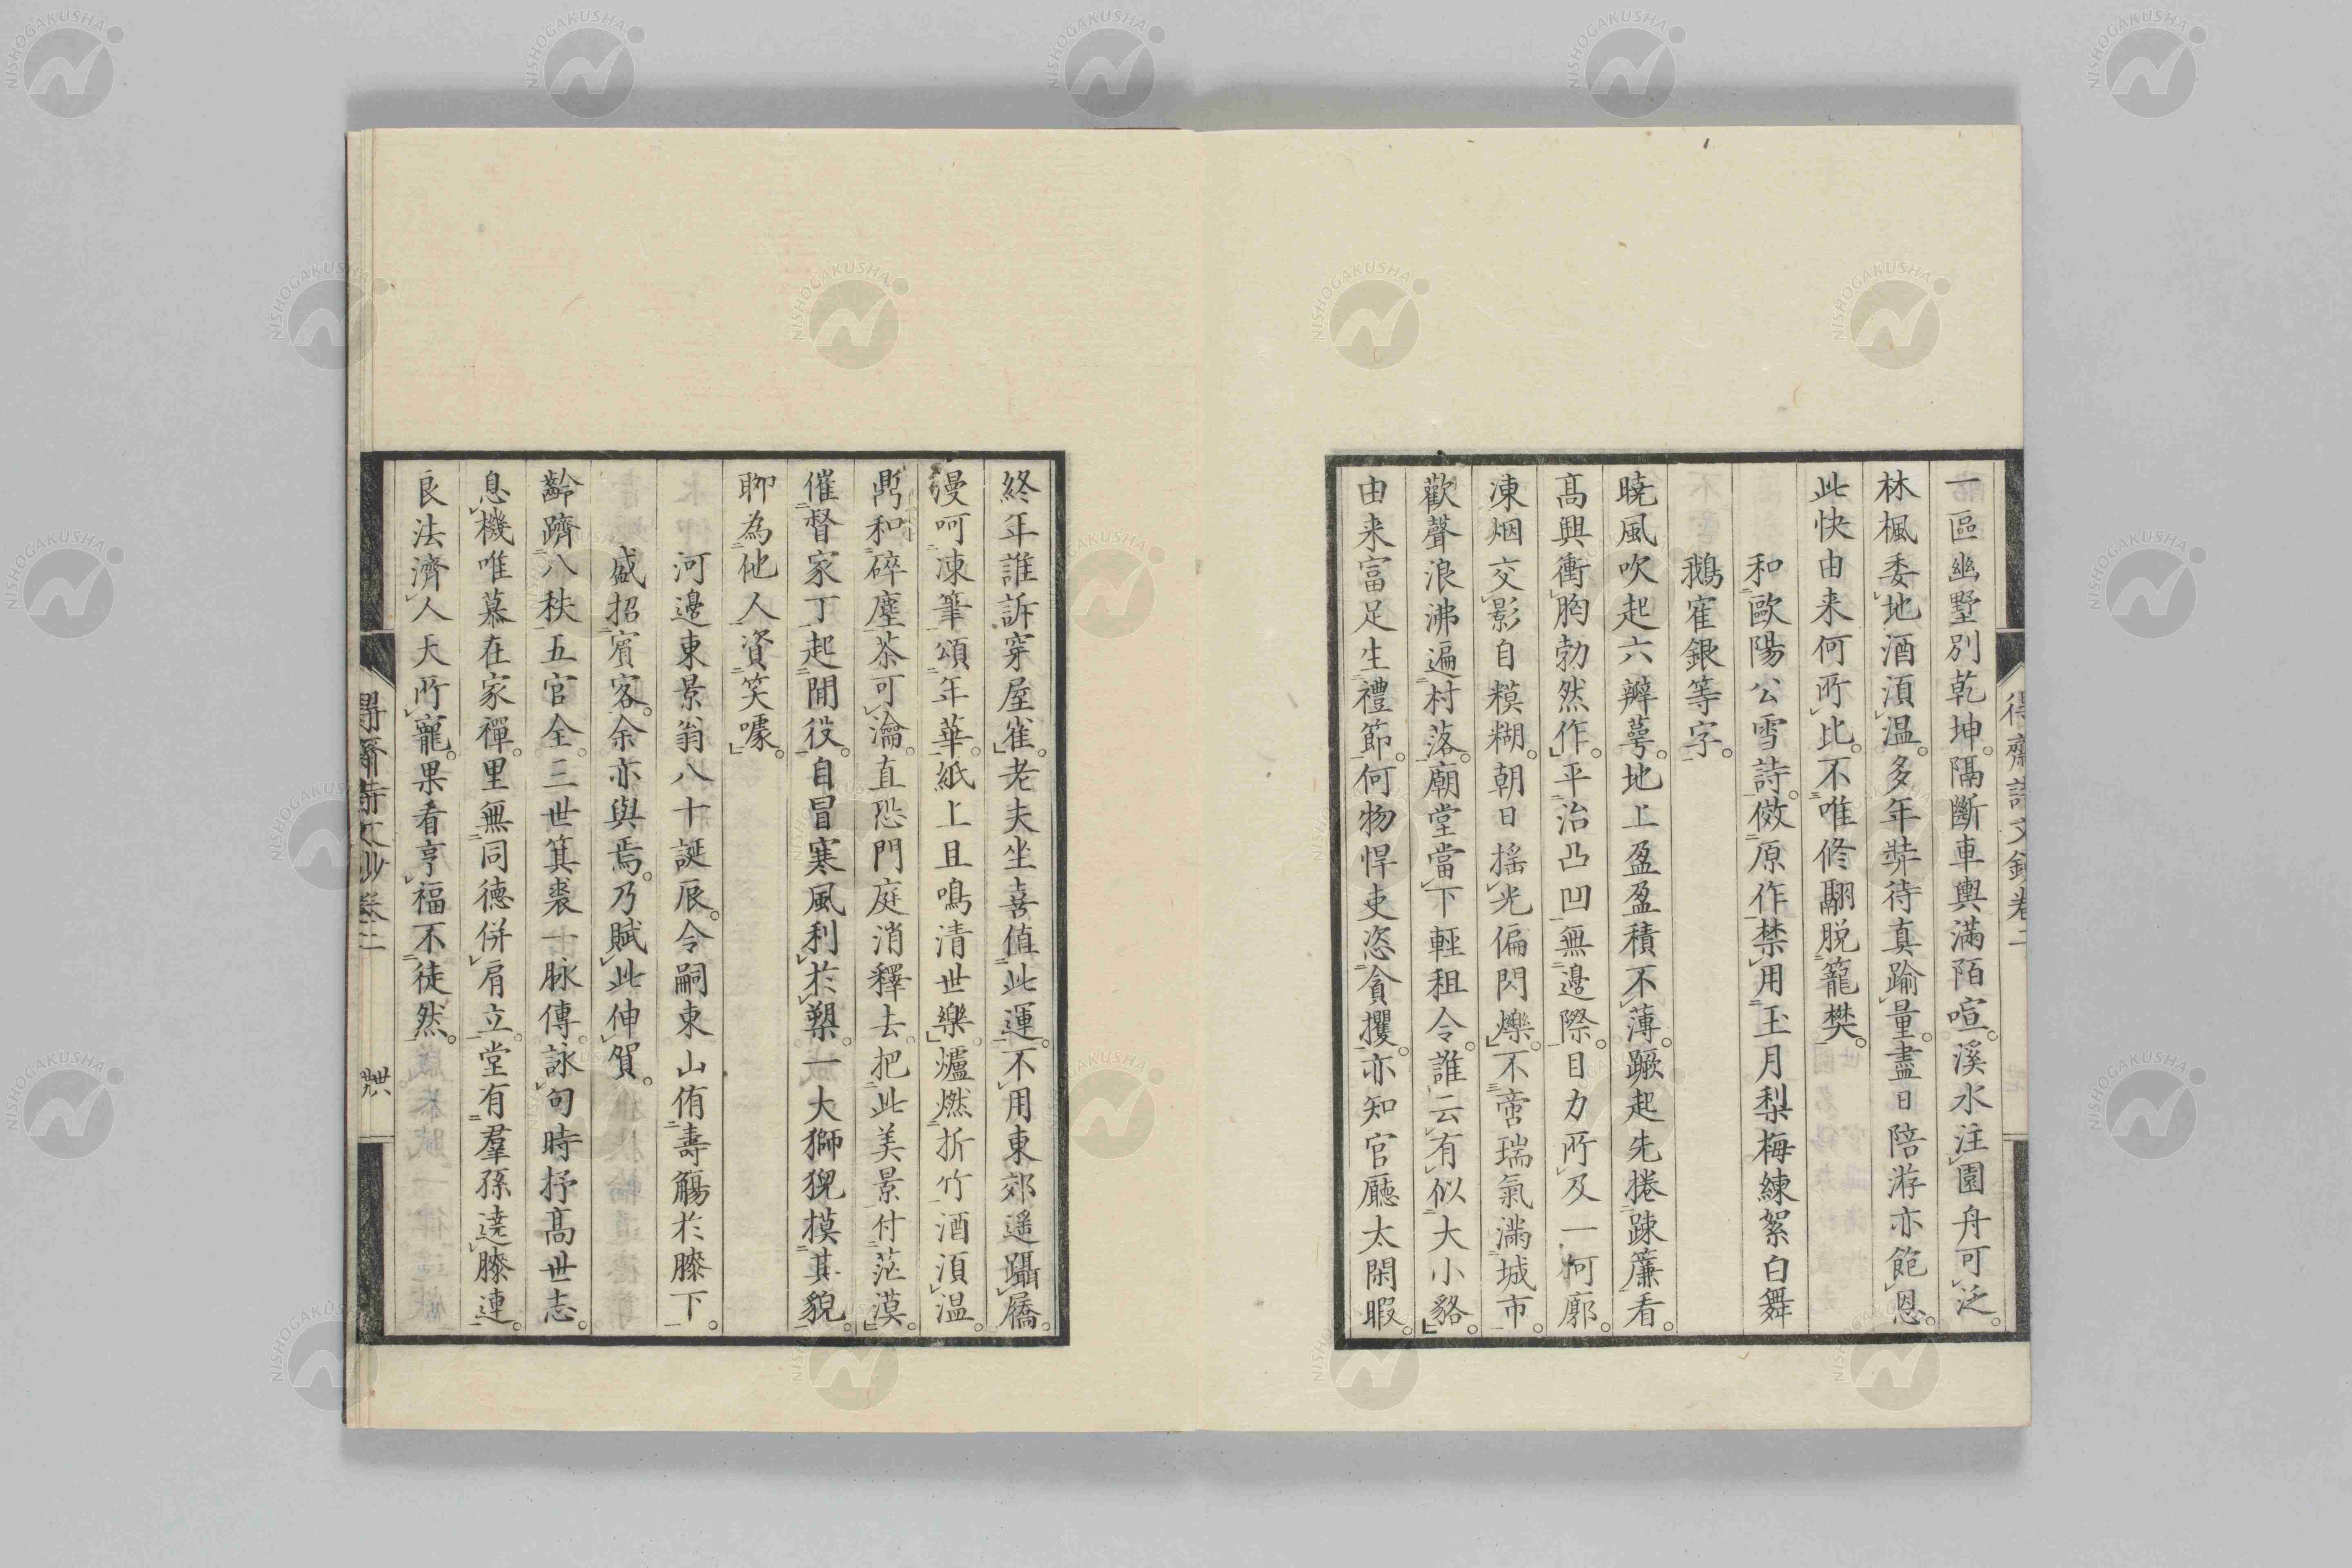 一區幽墅別乾坤。隔斷車輿滿陌喧。溪水注園舟可泛。
林楓委地酒須温。多年弊待真踰量。盡日陪游亦飽恩。
此快由来何所比。不唯脩翮脱籠樊。
和歐陽公雪詩。倣原作禁用玉月梨梅練絮白舞
鵝寉銀等字。
曉風吹起六瓣萼。地上盈盈積不薄。蹶起先捲疎簾看。
高興衝胸勃然作。平治凸凹無邊際。目力所及一何廓。
凍烟交影自糢糊。朝日揺光偏閃爍。不啻瑞氣滿城市。
歡聲浪沸遍村落。廟堂當下輕租令。誰云有似大小貉。
由来富足生禮節。何物悍吏恣貪攫。亦知官廳太閑暇。
終年誰訴穿屋雀。老夫坐喜值此運。不用東郊遥躡屩。
漫呵凍筆頌年華。紙上且鳴清世樂。爐燃折竹酒須温。
鼎和碎塵茶可瀹。直恐門庭消釋去。把此美景付茫漠。
催督家丁起閒役。自冒寒風利於槊。一大獅猊模其貌。
聊為他人資笑噱。
河邉東景翁八十誕辰。令嗣東山侑壽觴於膝下。
盛招賓客。余亦與焉。乃賦此伸賀。
齡躋八秩五官全。三世箕裘一脉傳。詠句時抒高世志。
息機唯慕在家禪。里無同德併肩立。堂有羣孫遶膝連。
良法濟人天所寵。果看亨福不徒然。